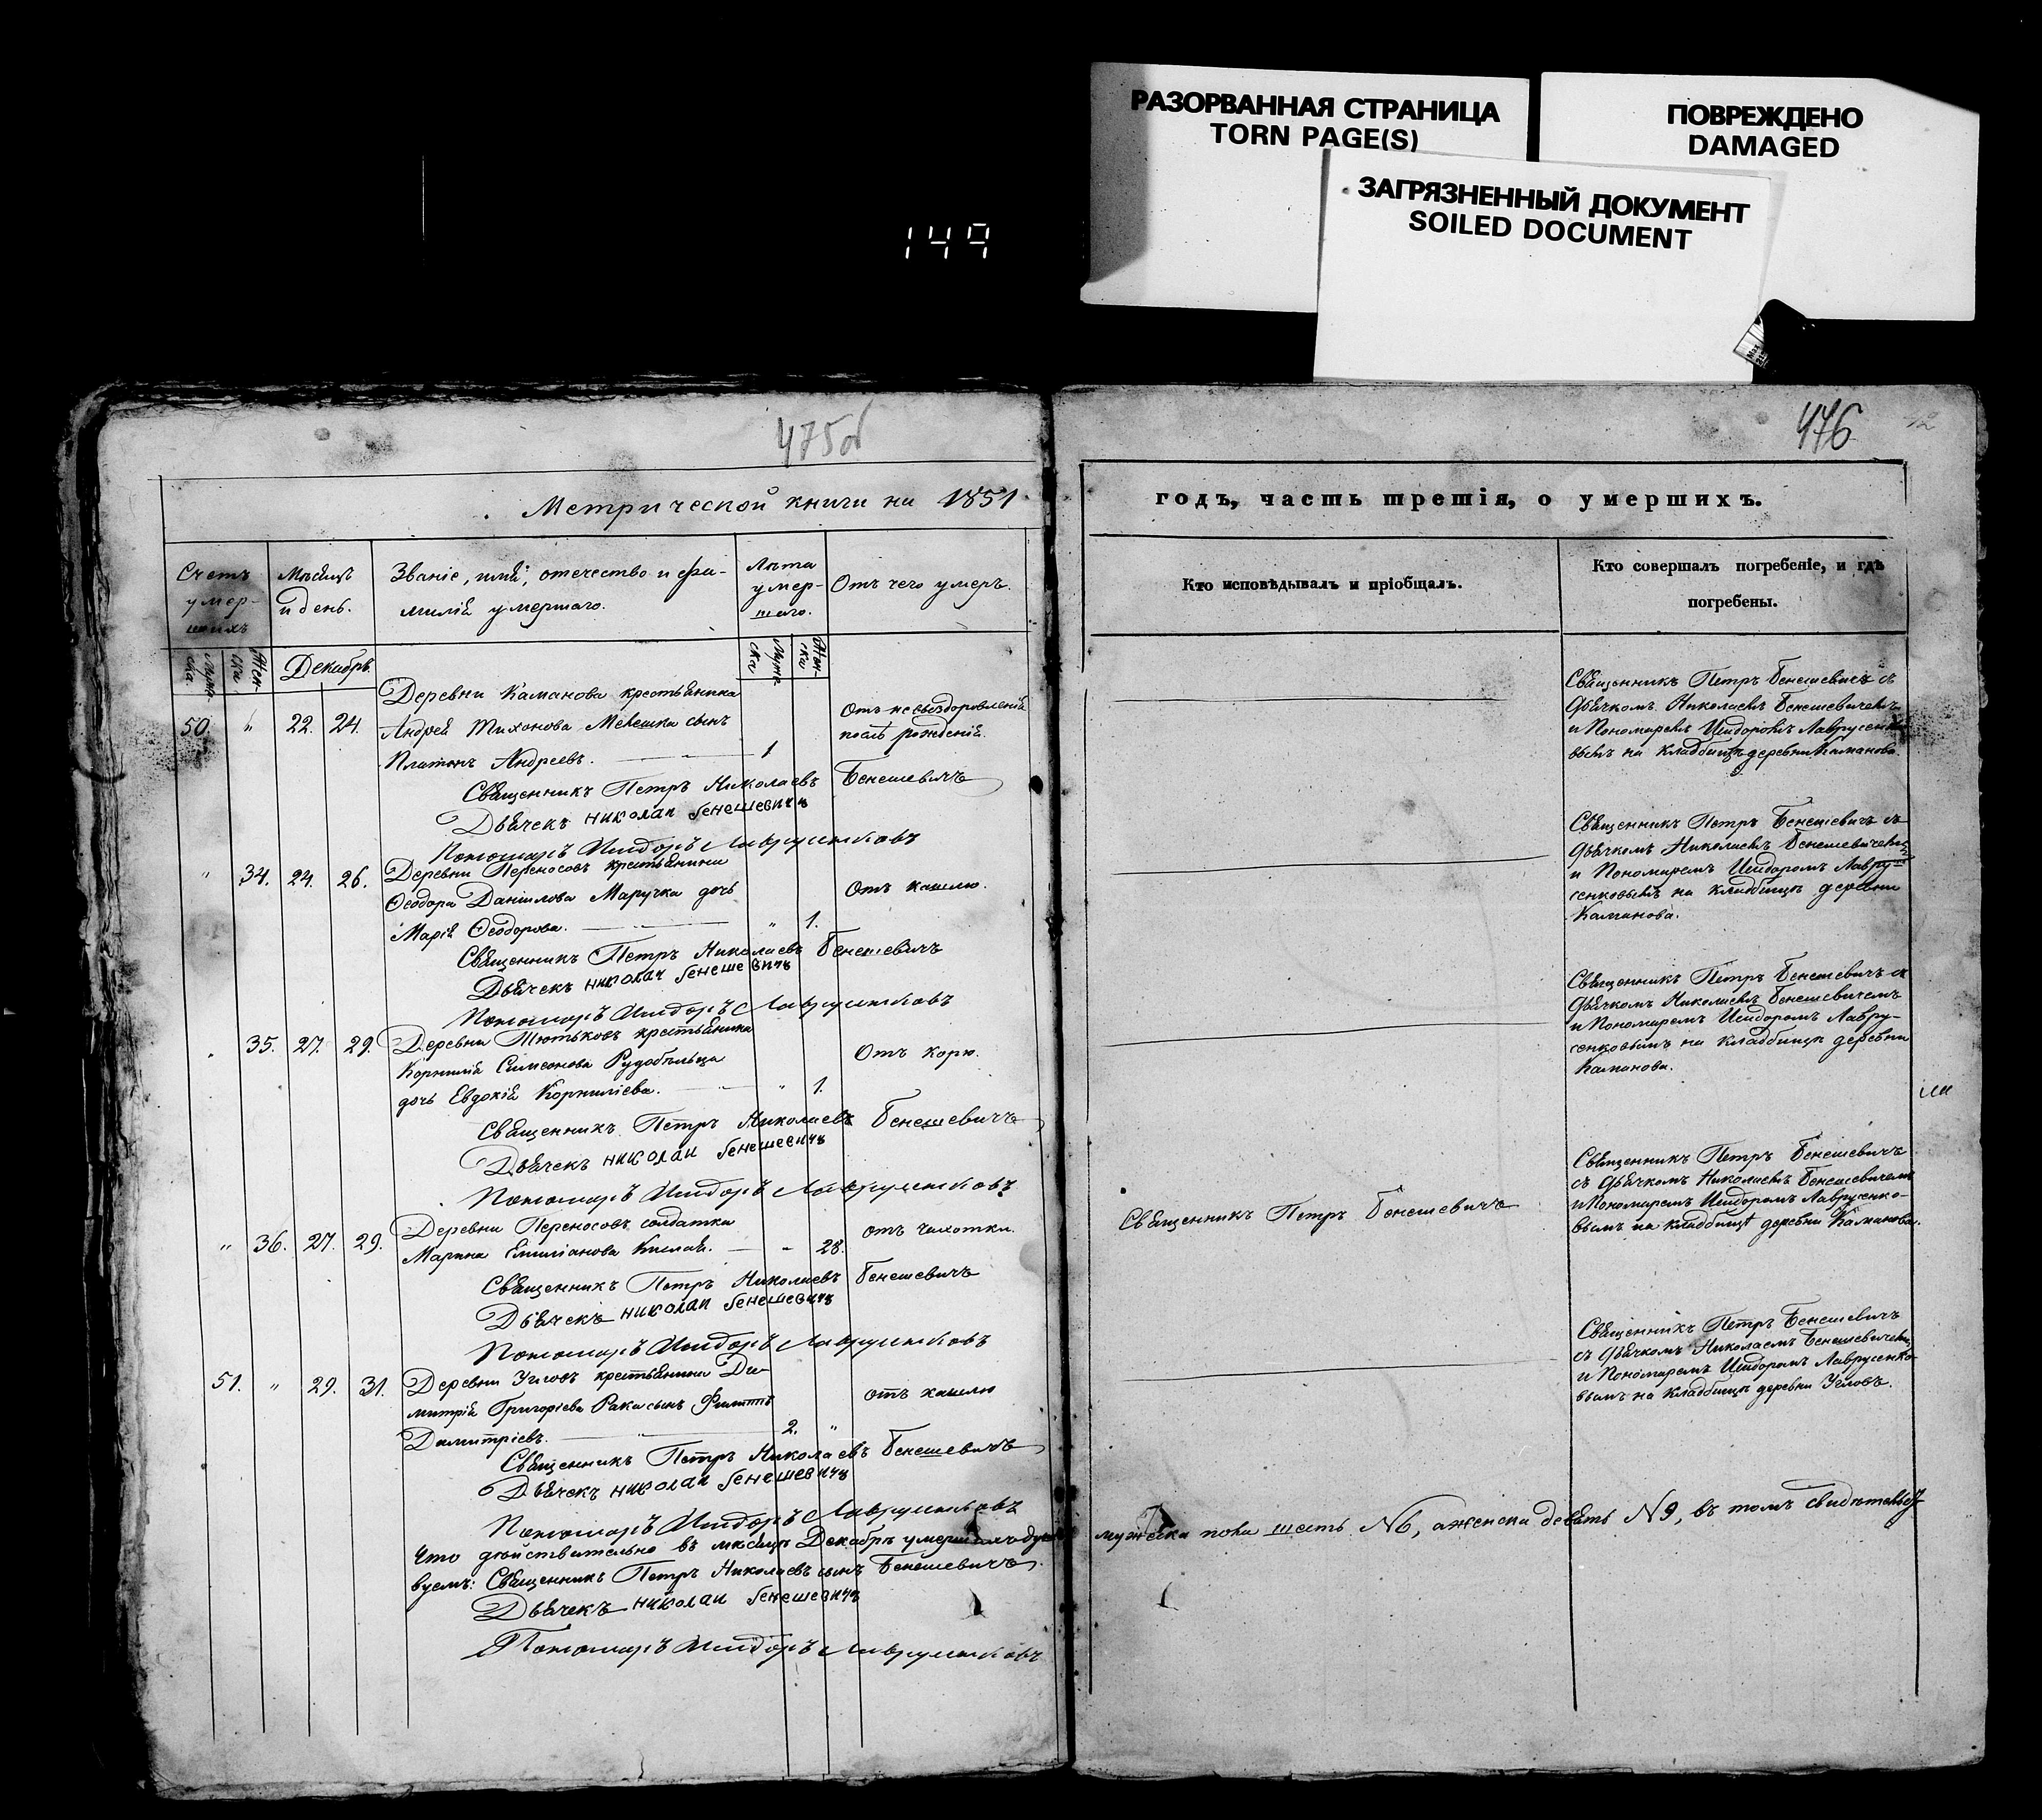 РАЗОРВАННАЯ СТРАНИЦА
TORN PAGE(S)
ПОВРЕЖДЕНО
DAMAGED
ЗАГРЯЗНЕННЫЙ ДОКУМЕНТ
SOILED DOCUMENT
149
475об
Метрической книги на 1851
Счетъ умер-шихъ
Мѣсяцъ и день.
Званіе, имя, отечество и фа-
милія умершаго.
Лѣта умер-шаго.
Отъ чего умеръ.
Муже-ска.
Жен-ска
Декабрь
Муже-ска
Жен-ска
Деревни Каманова крестьянина
50. " 22. 24. Андрея Тихонова Мелешка сынъ
Платонъ Андреевъ. 1
Отъ невыздоровленія
послѣ рожденія.
Священникъ Петръ Николаевъ Бенешевичъ
Дьячекъ николаи бенешевичъ
Пономаръ Исидоръ Лаврученковъ
" 34. 24. 26. Деревни Переносовъ крестьянина
Ѳеодора Даніилова Маручка дочь
Марія Ѳеодорова. " 1.
Отъ кашлю.
Священникъ Петръ Николаевъ Бенешевичъ
Дьячекъ николаи бенешевичъ
Пономаръ Исидоръ Лаврученковъ
35. 27. 29. Деревни Тютьковъ крестьянина
Корнилія Симеонова Рудобѣльца
дочь Евдокія Корниліева. " 1.
Отъ корю.
Священникъ Петръ Николаевъ Бенешевичъ
Дьячекъ николаи бенешевичъ
Пономаръ Исидоръ Лаврученковъ
" 36. 27. 29. Деревни Переносовъ солдатка
Марина Емиліанова 28.
отъ чахотки.
Священникъ Петръ Николаевъ Бенешевичъ
Дьячекъ николаи бенешевичъ
Пономаръ Исидоръ Лаврученковъ
51. " 29. 31. Деревни Угловъ крестьянина Ди-
митрія Григоріева Рака сынъ Филиппъ
Димитріевъ. 2. "
отъ кашлю
Священникъ Петръ Николаевъ Бенешевичъ
Дьячекъ николаи бенешевичъ
Пономаръ Исидоръ Лаврученковъ
Что дѣйствительно въ мѣсяцѣ Декабрѣ умершихъ
вуемъ: Священникъ Петръ Николаевъ сынъ Бенешевичъ.
Дьячекъ николаи бенешевичъ
Пономаръ Исидоръ Лаврученковъ
476
12
годъ, часть третія, о умершихъ.
Кто исповѣдывалъ и пріобщалъ.
Кто совершалъ погребеніе, и гдѣ
погребены.
Священникъ Петръ Бенешевичъ съ
дьячкомъ Николаемъ Бенешевичемъ
и Пономаремъ Исидоромъ Лаврусенко-
вымъ на кладбищѣ деревни Каманова.
Священникъ Петръ Бенешевичъ съ
дьячкомъ Николаемъ Бенешевичемъ
и Пономаремъ Исидоромъ Лавру-
сенковымъ на кладбищѣ деревни
Каманова.
Священникъ Петръ Бенешевичъ съ
дьячкомъ Николаемъ Бенешевичемъ
и Пономаремъ Исидоромъ Лавру-
сенковымъ на кладбищѣ деревни
Каманова.
Священникъ Петръ Бенешевичъ
Священникъ Петръ Бенешевичъ
съ дьячкомъ Николаемъ Бенешевичемъ
и Пономаремъ Исидоромъ Лаврусенко-
вымъ на кладбищѣ деревни Каманова.
Священникъ Петръ Бенешевичъ
съ дьячкомъ Николаемъ Бенешевичемъ
и Пономаремъ Исидоромъ Лаврусенко-
вымъ на кладбищѣ деревни Угловъ.
мужеска пола шесть N6, а женска девять N9, въ томъ свидѣтельст-